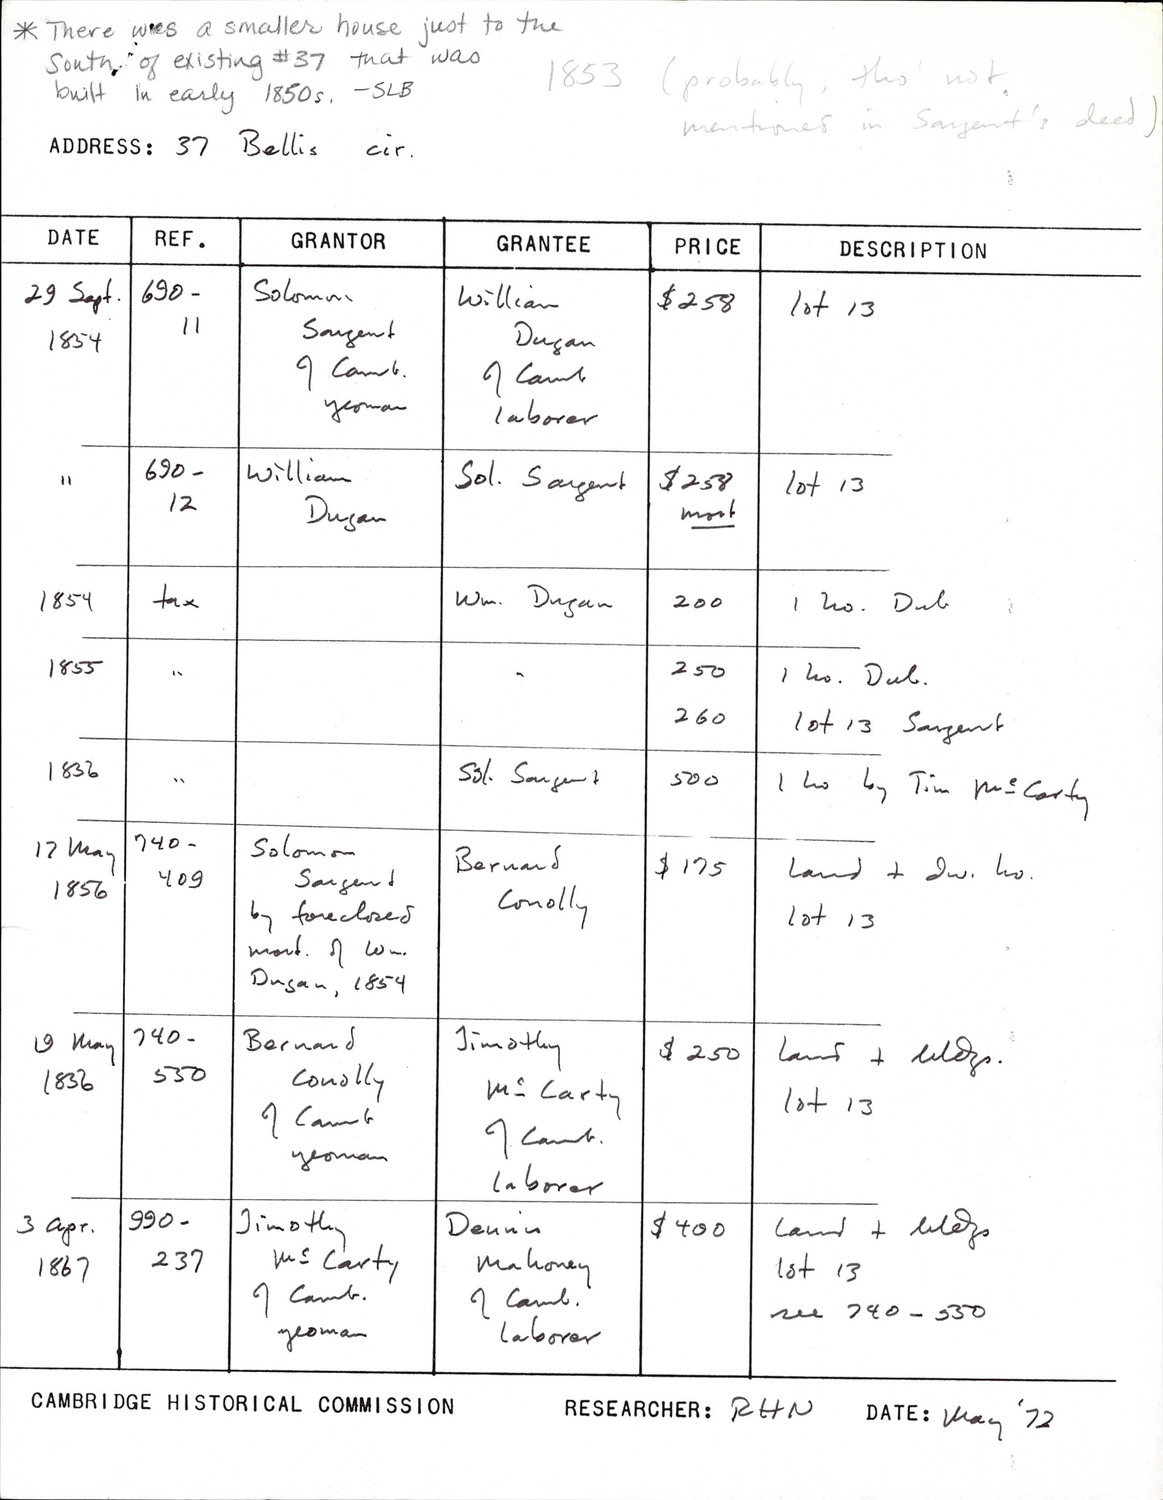 * There was a smaller house just to the
South, of existing #37 that was
built in early 1850s. -SLB
1853 (probably, tho' not
mentioned in Sargent's deed)
ADDRESS: 37 Bellis cir.
DATE REF. GRANTOR GRANTEE PRICE DESCRIPTION
29 Sept. 1854
690-11
Solomon
Sargent
of Camb.
yeoman
William
Dugan
of Camb
laborer
$258
lot 13
"
690-12
William
Dugan
Sol. Sargent
$258
mort
lot 13
1854
tax
Wm. Dugan
200
1 ho. Dub
1855
"
"
250
1 ho. Dub.
260
lot 13 Sargent
1856
"
Sol. Sargent
500
1 ho by Tim McCarty
17 May
1856
740-
409
Solomon
Sargent
by foreclosed
mort. of Wm.
Dugan, 1854
Bernard
Conolly
$175
Land + dw. ho.
lot 13
19 May
1856
740-
530
Bernard
Conolly
of Camb
yeoman
Timothy
McCarty
of Camb.
laborer
$250
Land + bldgs.
lot 13
3 Apr.
1867
990-
237
Timothy
McCarty
of Camb.
yeoman
Dennis
Mahoney
of Camb.
laborer
$400
Land + bldgs
lot 13
see 740-530
CAMBRIDGE HISTORICAL COMMISSION RESEARCHER: RHN DATE: May '72